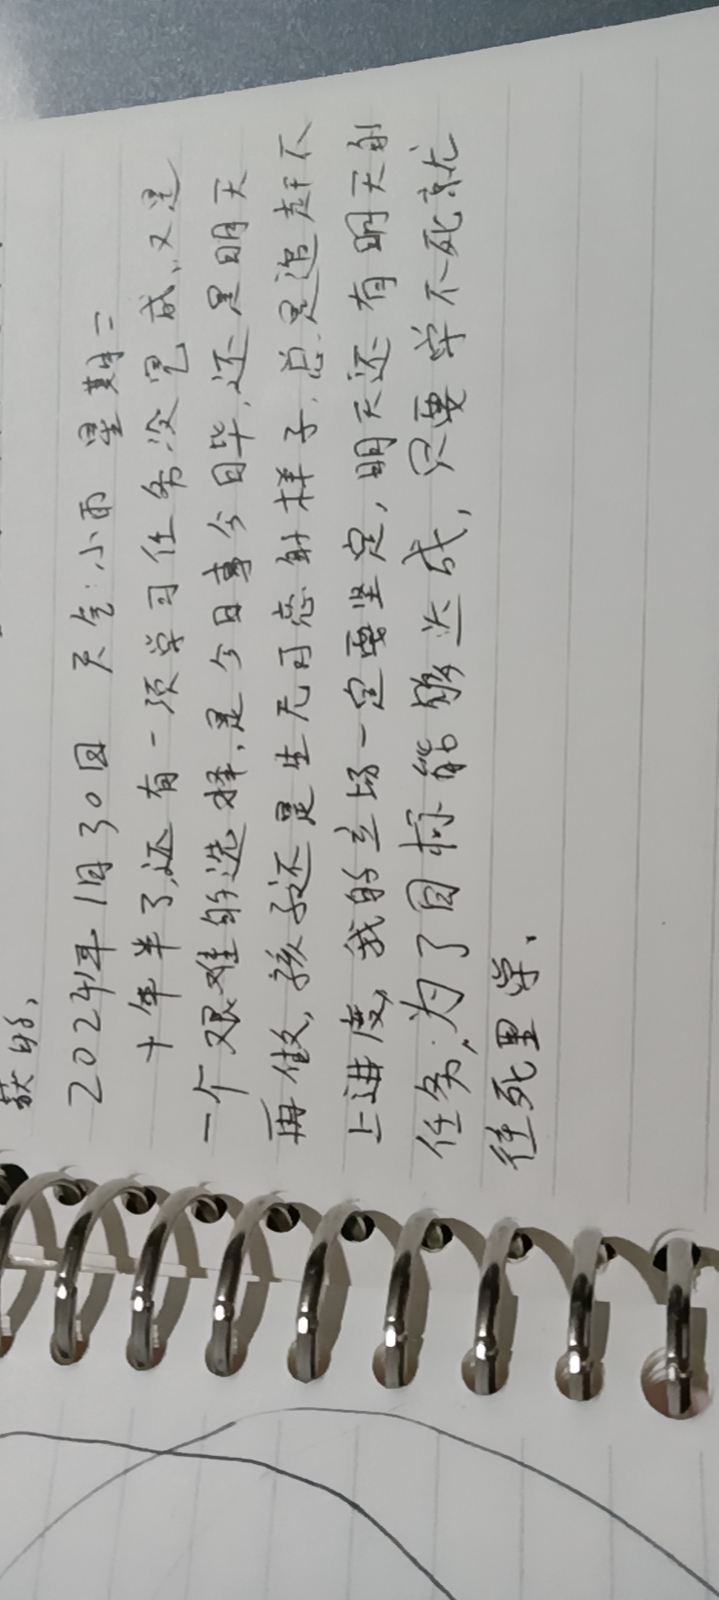 获的、
2024年1月30日 天气:小雨 星期二
十年半了,还有一项学习任务没完成、又是
一个艰难的选择,是今日事今日毕,还是明天
再做,孩子还是生无可恋的样子,总是追赶不
上进度,我的立场一定要坚定,明天还有明天的
任务,为了目标能够达成,只要学不死就
往死里学、